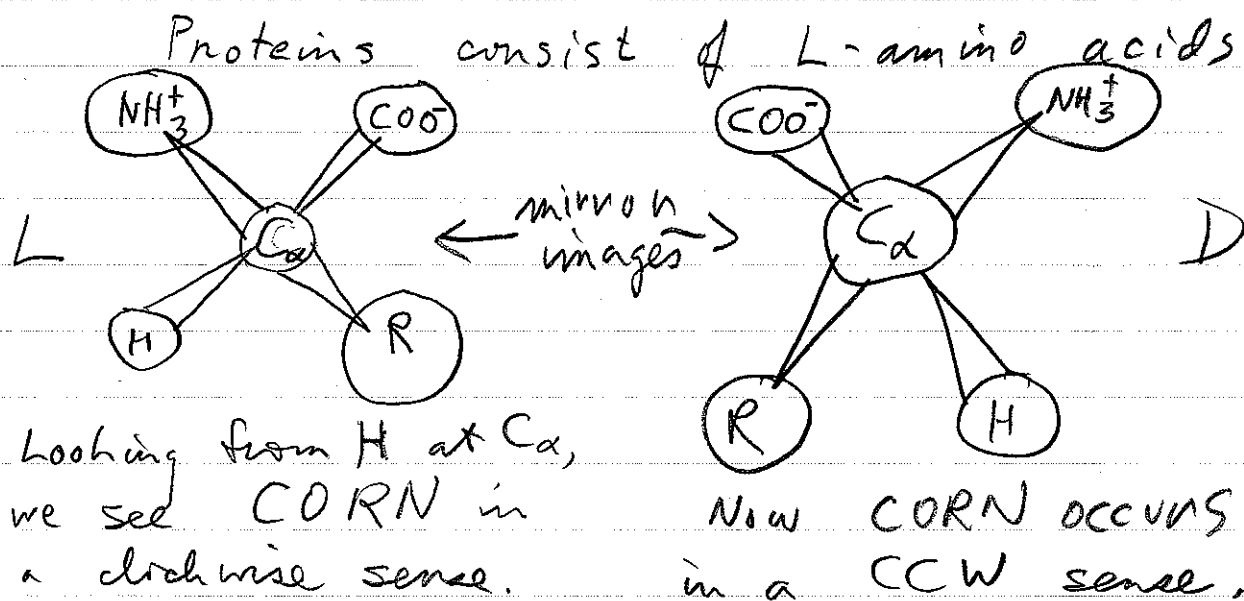 Proteins consist of L-amino acids
NH3+ COO- COO- NH3+
L Cα mirror images Cα D
H R R H
Looking from H at Cα,
we see CORN in
a clockwise sense.
Now CORN occurs
in a CCW sense.